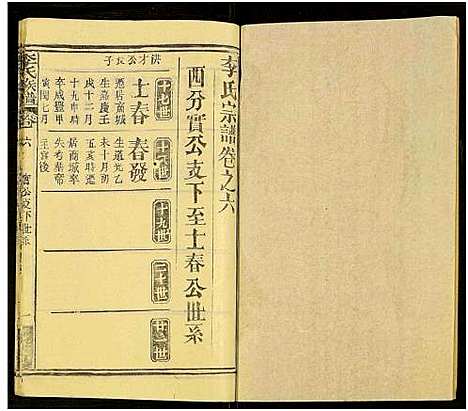 李氏宗譜卷之六
西分實公支下至士春公世系
十七世
十八世
十九世
二十世
廿一世
洪才公長子
士春
遷居商城
生嘉慶壬
戌十二月
十九申時
李咸豐甲
寅閏七月
春發
生道光乙
未十月初
五亥時遷
居商城卒
失考葬帝
王宮後
李氏族譜
卷六
實公支下世系
一